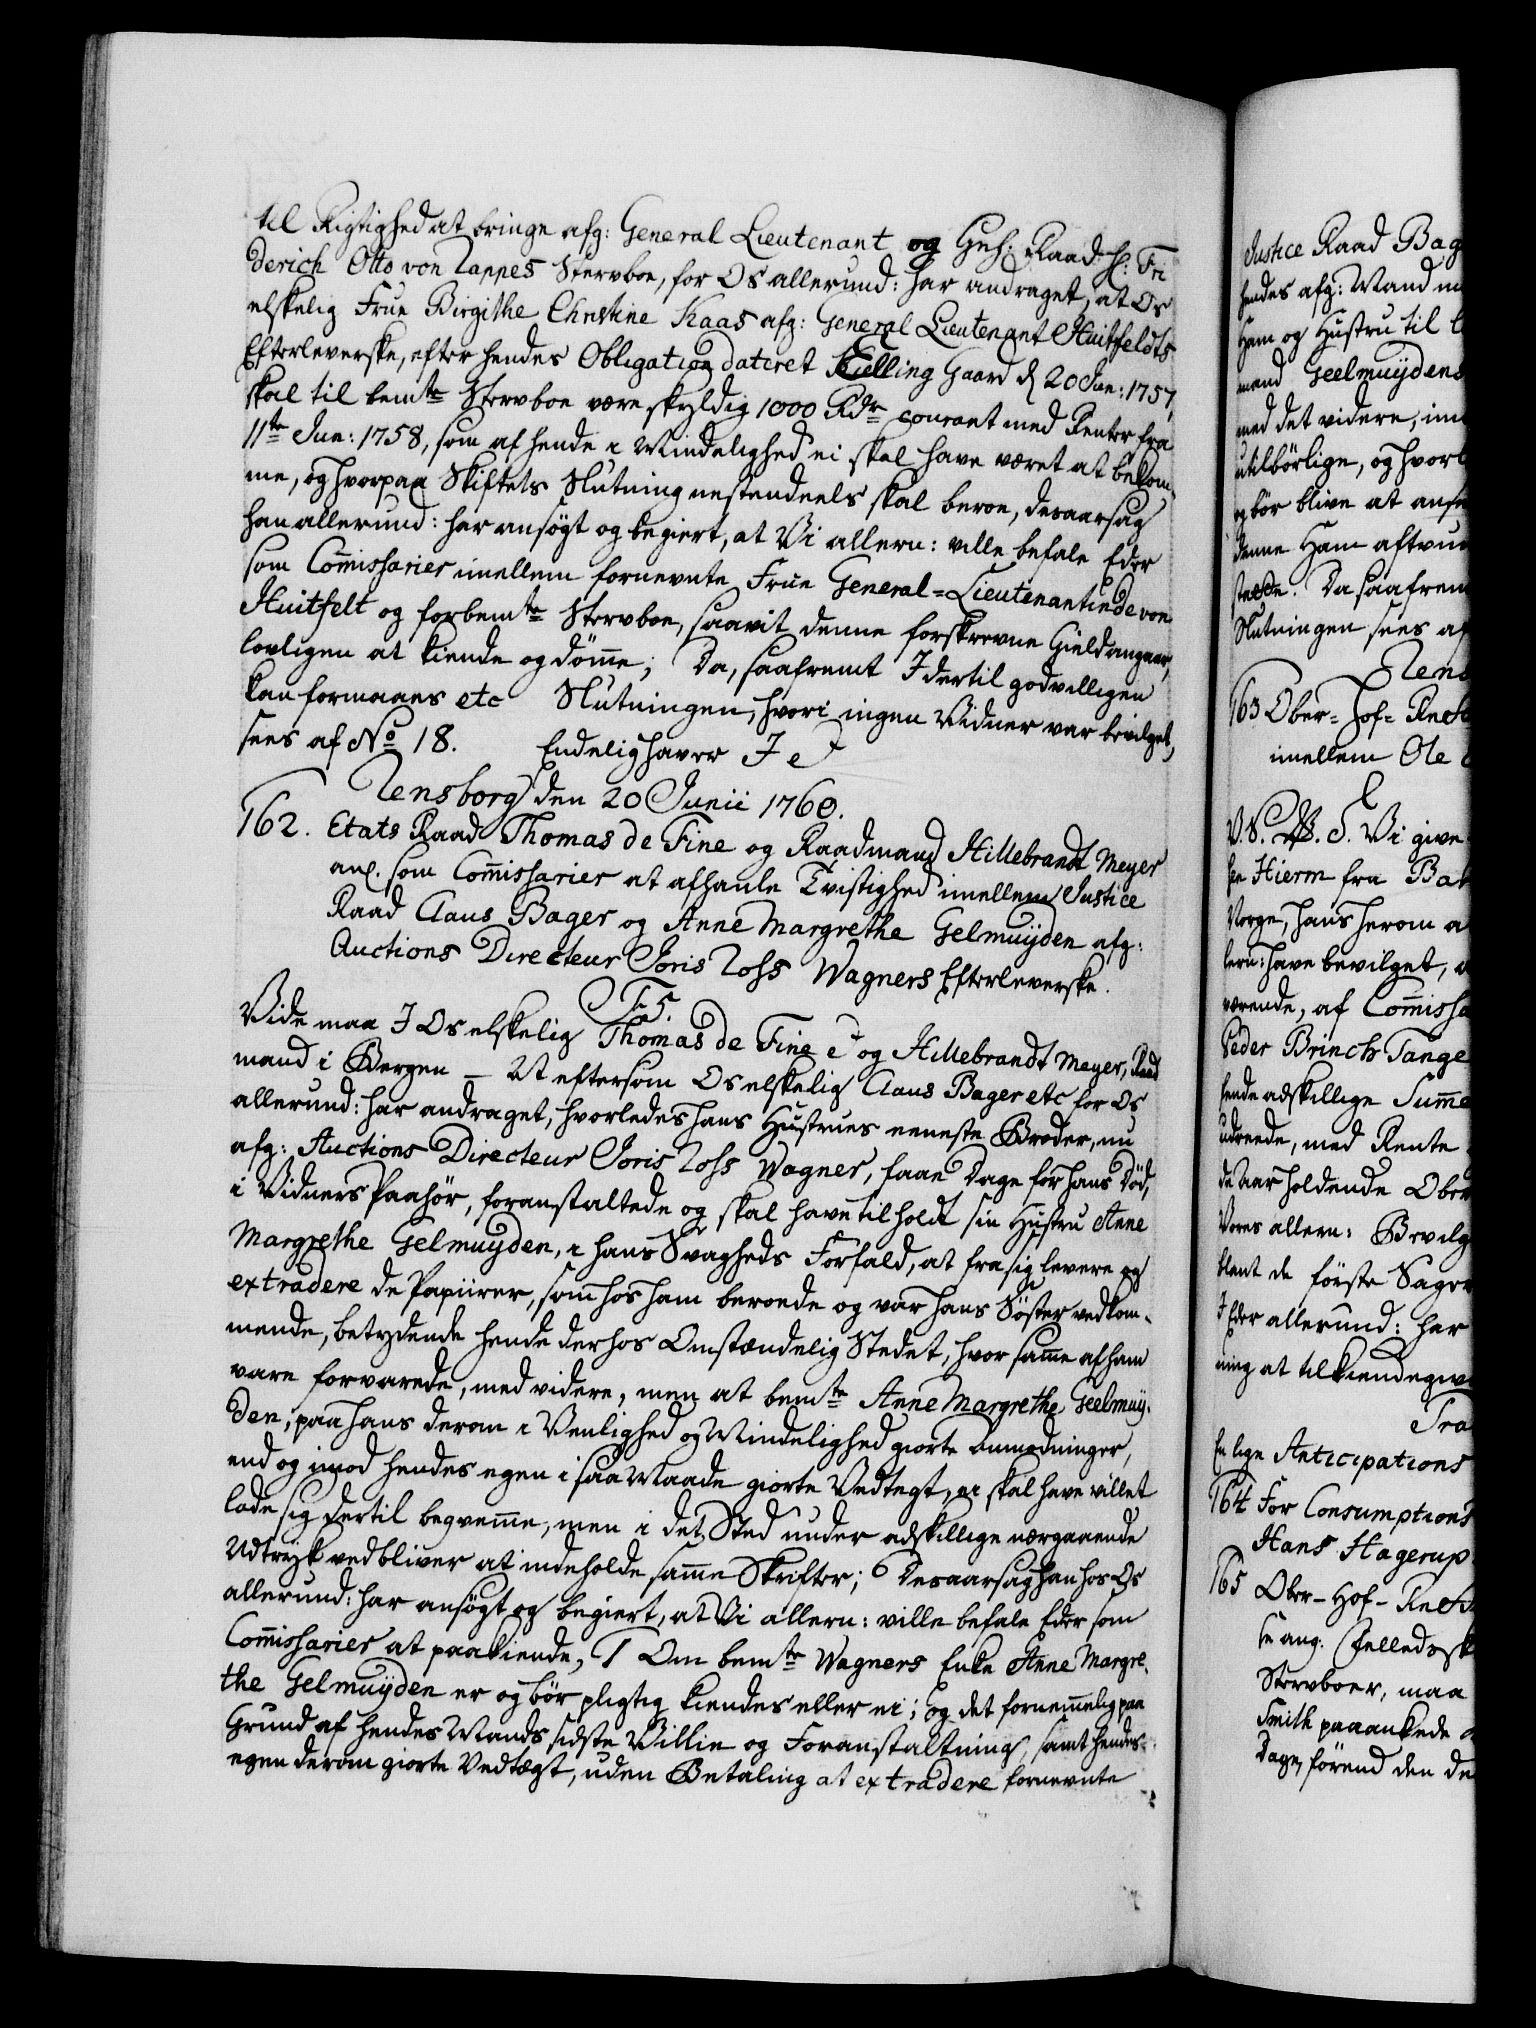 til Rigtighed at bringe afg: General Lieutenant og Geh: Raad H: Fri
derich Otto von Rappes Stervboe, for Os allerund: har andraget, at Os
elskelig Frue Birgithe Christine Kaas afg: General Lieutenant Huitfeldts
Efterleverske, efter hendes Obligation dateret Kielling Gaard d 20 Jun: 1757,
skal til bemte Stervboe være skyldig 1000 Rdr courant med Renter fra
11te Jun: 1758, som af hende i Mindelighed ei skal have været at bekom-
me, og hvorpaa Skiftets Slutning nestendeels skal beroe, desaarsag
han allerund: har ansøgt og begiert, at Vi allern: ville befale Eder
som Commissarier imellem fornevnte Frue General-Lieutenantinde von
Huitfelt og forbemte Stervboe, saavit denne forskrevne Gield angaar,
lovligen at kiende og dømme; Da, saafremt I dertil godvilligen
kan formaaes etc Slutningen, hvori ingen Vidner var bevilget,
sees af No 18. Endelig haver I e
Rensborg den 20 Junii 1760.
162. Etats Raad Thomas de Fine og Raadmand Hillebrandt Meyer
anl. som Commissarier at afhanle Tvistighed imellem Justice
Raad Claus Bager og Anne Margrethe Gelmuyden afg:
Auctions Directeur Joris Rohs Wagners Efterleverske.
F. 5.
Vide maa I Os elskelig Thomas de Fine e og Hillebrandt Meyer, Raad
mand i Bergen — At eftersom Os elskelig Claus Bager etc for Os
allerund: har andraget, hvorledes hans Hustrues eeneste Broder, nu
afg: Auctions Directeur Joris Rohs Wagner, faae Dage før hans Død,
i Vidners Paahør, foranstaltede og skal have tilholdt sin Hustru Anne
Margrethe Gelmuyden, i hans Svagheds Forfald, at fra sig levere og
extradere de Papiirer, som hos ham beroede og var hans Søster vedkom-
mende, betydende hende derhos Omstændelig Stedet, hvor samme af ham
vare forvarede, med videre, men at bemte Anne Margrethe Geelmuy-
den, paa hans derom i Venlighed og Mindelighed giorte Anmodninger,
end og imod hendes egen i saa Maade giorte Vedtegt, ei skal have villet
lade sig dertil beqvemme, men i det Sted under adskillige nærgaaende
Udtryk vedbliver at indeholde samme Skrifter; Desaarsag han hos Os
allerund: har ansøgt og begiert, at Vi allern: ville befale Eder som
Commissarier at paakiende, 1 Om bemte Wagners Enke Anne Margre-
the Gelmuyden er og bør pligtig kiendes eller ei; og det fornemmelig paa
Grund af hendes Mands sidste Villie og Foranstaltning, samt hendes
egen derom giorte Vedtægt, uden Betaling at extradere fornevnte
Justice Raad Bag
hendes afg: Mand
Ham og Hustru til
mand Geelmuydens
med det videre,
utilbørlige, og hvor
bør blive at anse
denne Ham aftvun
Da saafrem
Slutningen sees af
Rens
163 Ober-Hof-Rett
imellem Ole
V. S. Vi give
Hierm fra Bat
Norge, hans herom a
lern: have bevilget,
værende, af Commissa
Peder Brinch Tange
hende adskillige Summe
udreede, med Rente
de Aar holdende Ober
Vores allern: Bevilg
blant de første Sager
I Eder allerund: har
ning at tilkiendegive
Tra
En lige Anticipations
164 For Consumptions
Hans Hagerup
165 Ober-Hof-Rett
se ang: Fælleds
Stervboer, maa
Smith paaankede
Dage, førend den de